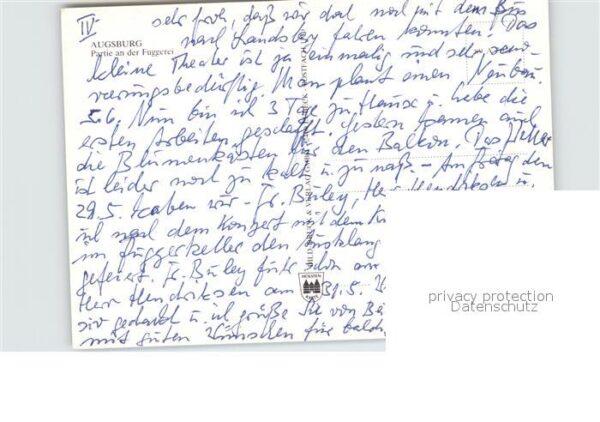 IV
sehr froh, daß wir doch noch mit dem Bus
nach Landsberg fahren konnten! Das
AUGSBURG
Partie an der Fuggerei
kleine Theater ist ja einmalig und sehr reno-
vierungsbedürftig. Man plant einen Neubau.
5.6. Nun bin ich 3 Tage zu Hause u. habe die
ersten Arbeiten geschafft, gestern kamen auch
die Blumenkästen für den Balkon. Das Wetter
ist leider noch zu kalt u. zu naß. – Am Freitag den
29.5. haben wir – Fr. Burley, Herr Hendriksen u.
ich nach dem Konzert mit dem
im Fuggerkeller den Ausklang
gefeiert. Fr. Burley fuhr schon
Herr Hendriksen am 31.5.
sie gedacht u. ich grüße Sie von
mit guten Wünschen für
privacy protection
Datenschutz